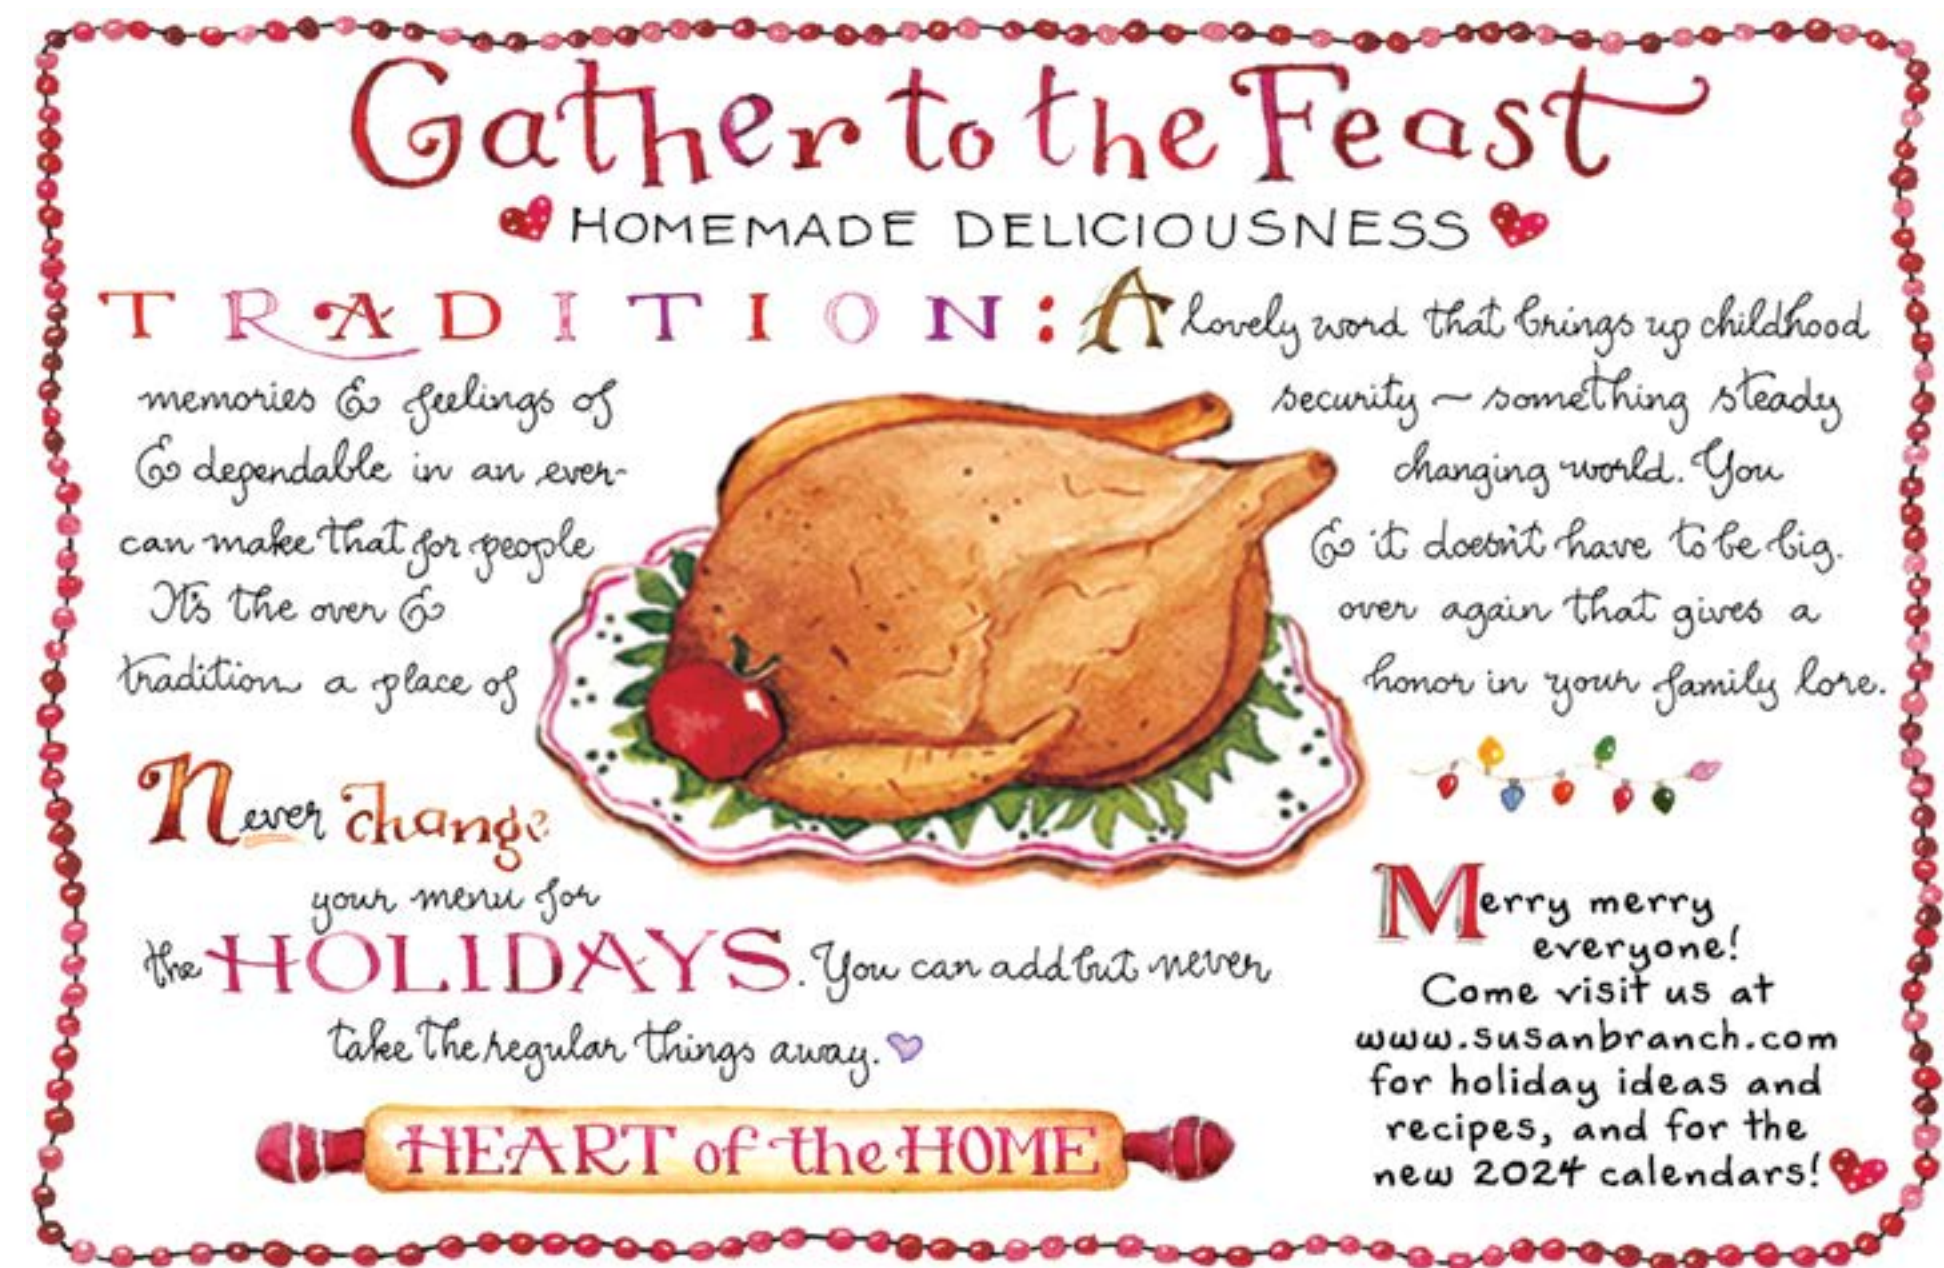 Gather to the Feast
HOMEMADE DELICIOUSNESS
TRADITION: A lovely word that brings up childhood
memories & feelings of security ~ something steady
& dependable in an ever- changing world. You
can make that for people & it doesn't have to be big.
It's the over & over again that gives a
tradition a place of honor in your family lore.
Never change
your menu for
the HOLIDAYS. You can add but never
take the regular things away.
HEART of the HOME
Merry merry
everyone!
Come visit us at
www.susanbranch.com
for holiday ideas and
recipes, and for the
new 2024 calendars!